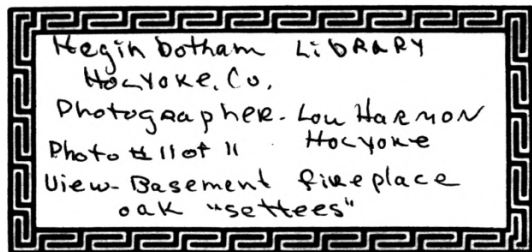 Heginbotham LIBRARY
Holyoke, Co.
Photographer- Lou HARMON
Photo # 11 of 11 Holyoke
View- Basement fireplace
oak "settees"